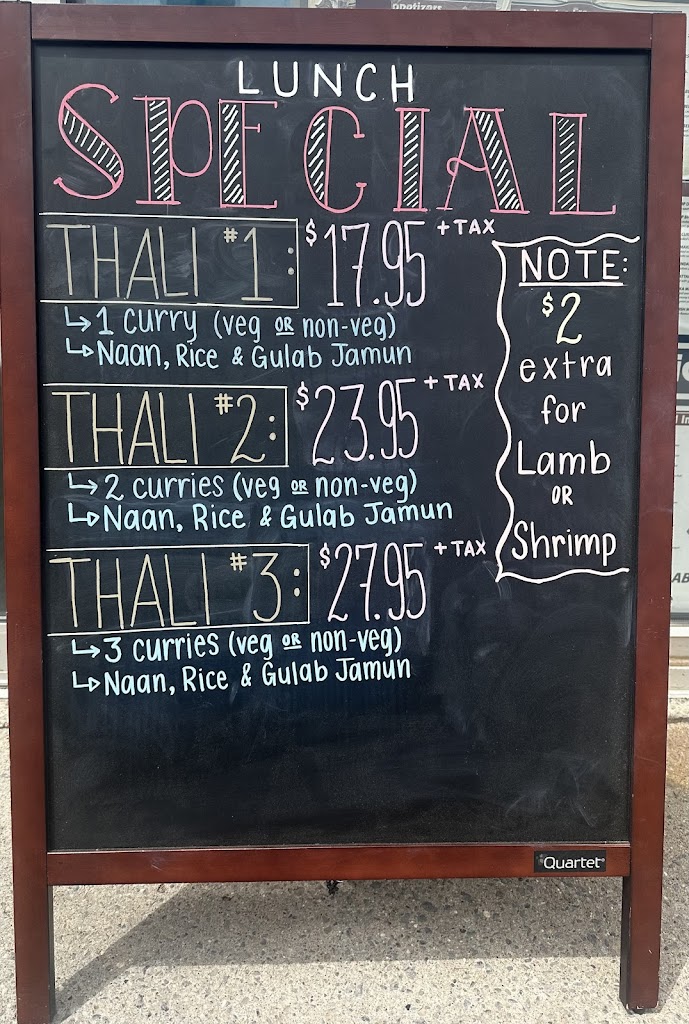 LUNCH
SPECIAL
THALI #1: $17.95 + TAX
↳ 1 curry (veg OR non-veg)
↳ Naan, Rice & Gulab Jamun
THALI #2: $23.95 + TAX
↳ 2 curries (veg OR non-veg)
↳ Naan, Rice & Gulab Jamun
THALI #3: $27.95 + TAX
↳ 3 curries (veg OR non-veg)
↳ Naan, Rice & Gulab Jamun
NOTE:
$2
extra
for
Lamb
OR
Shrimp
Quartet